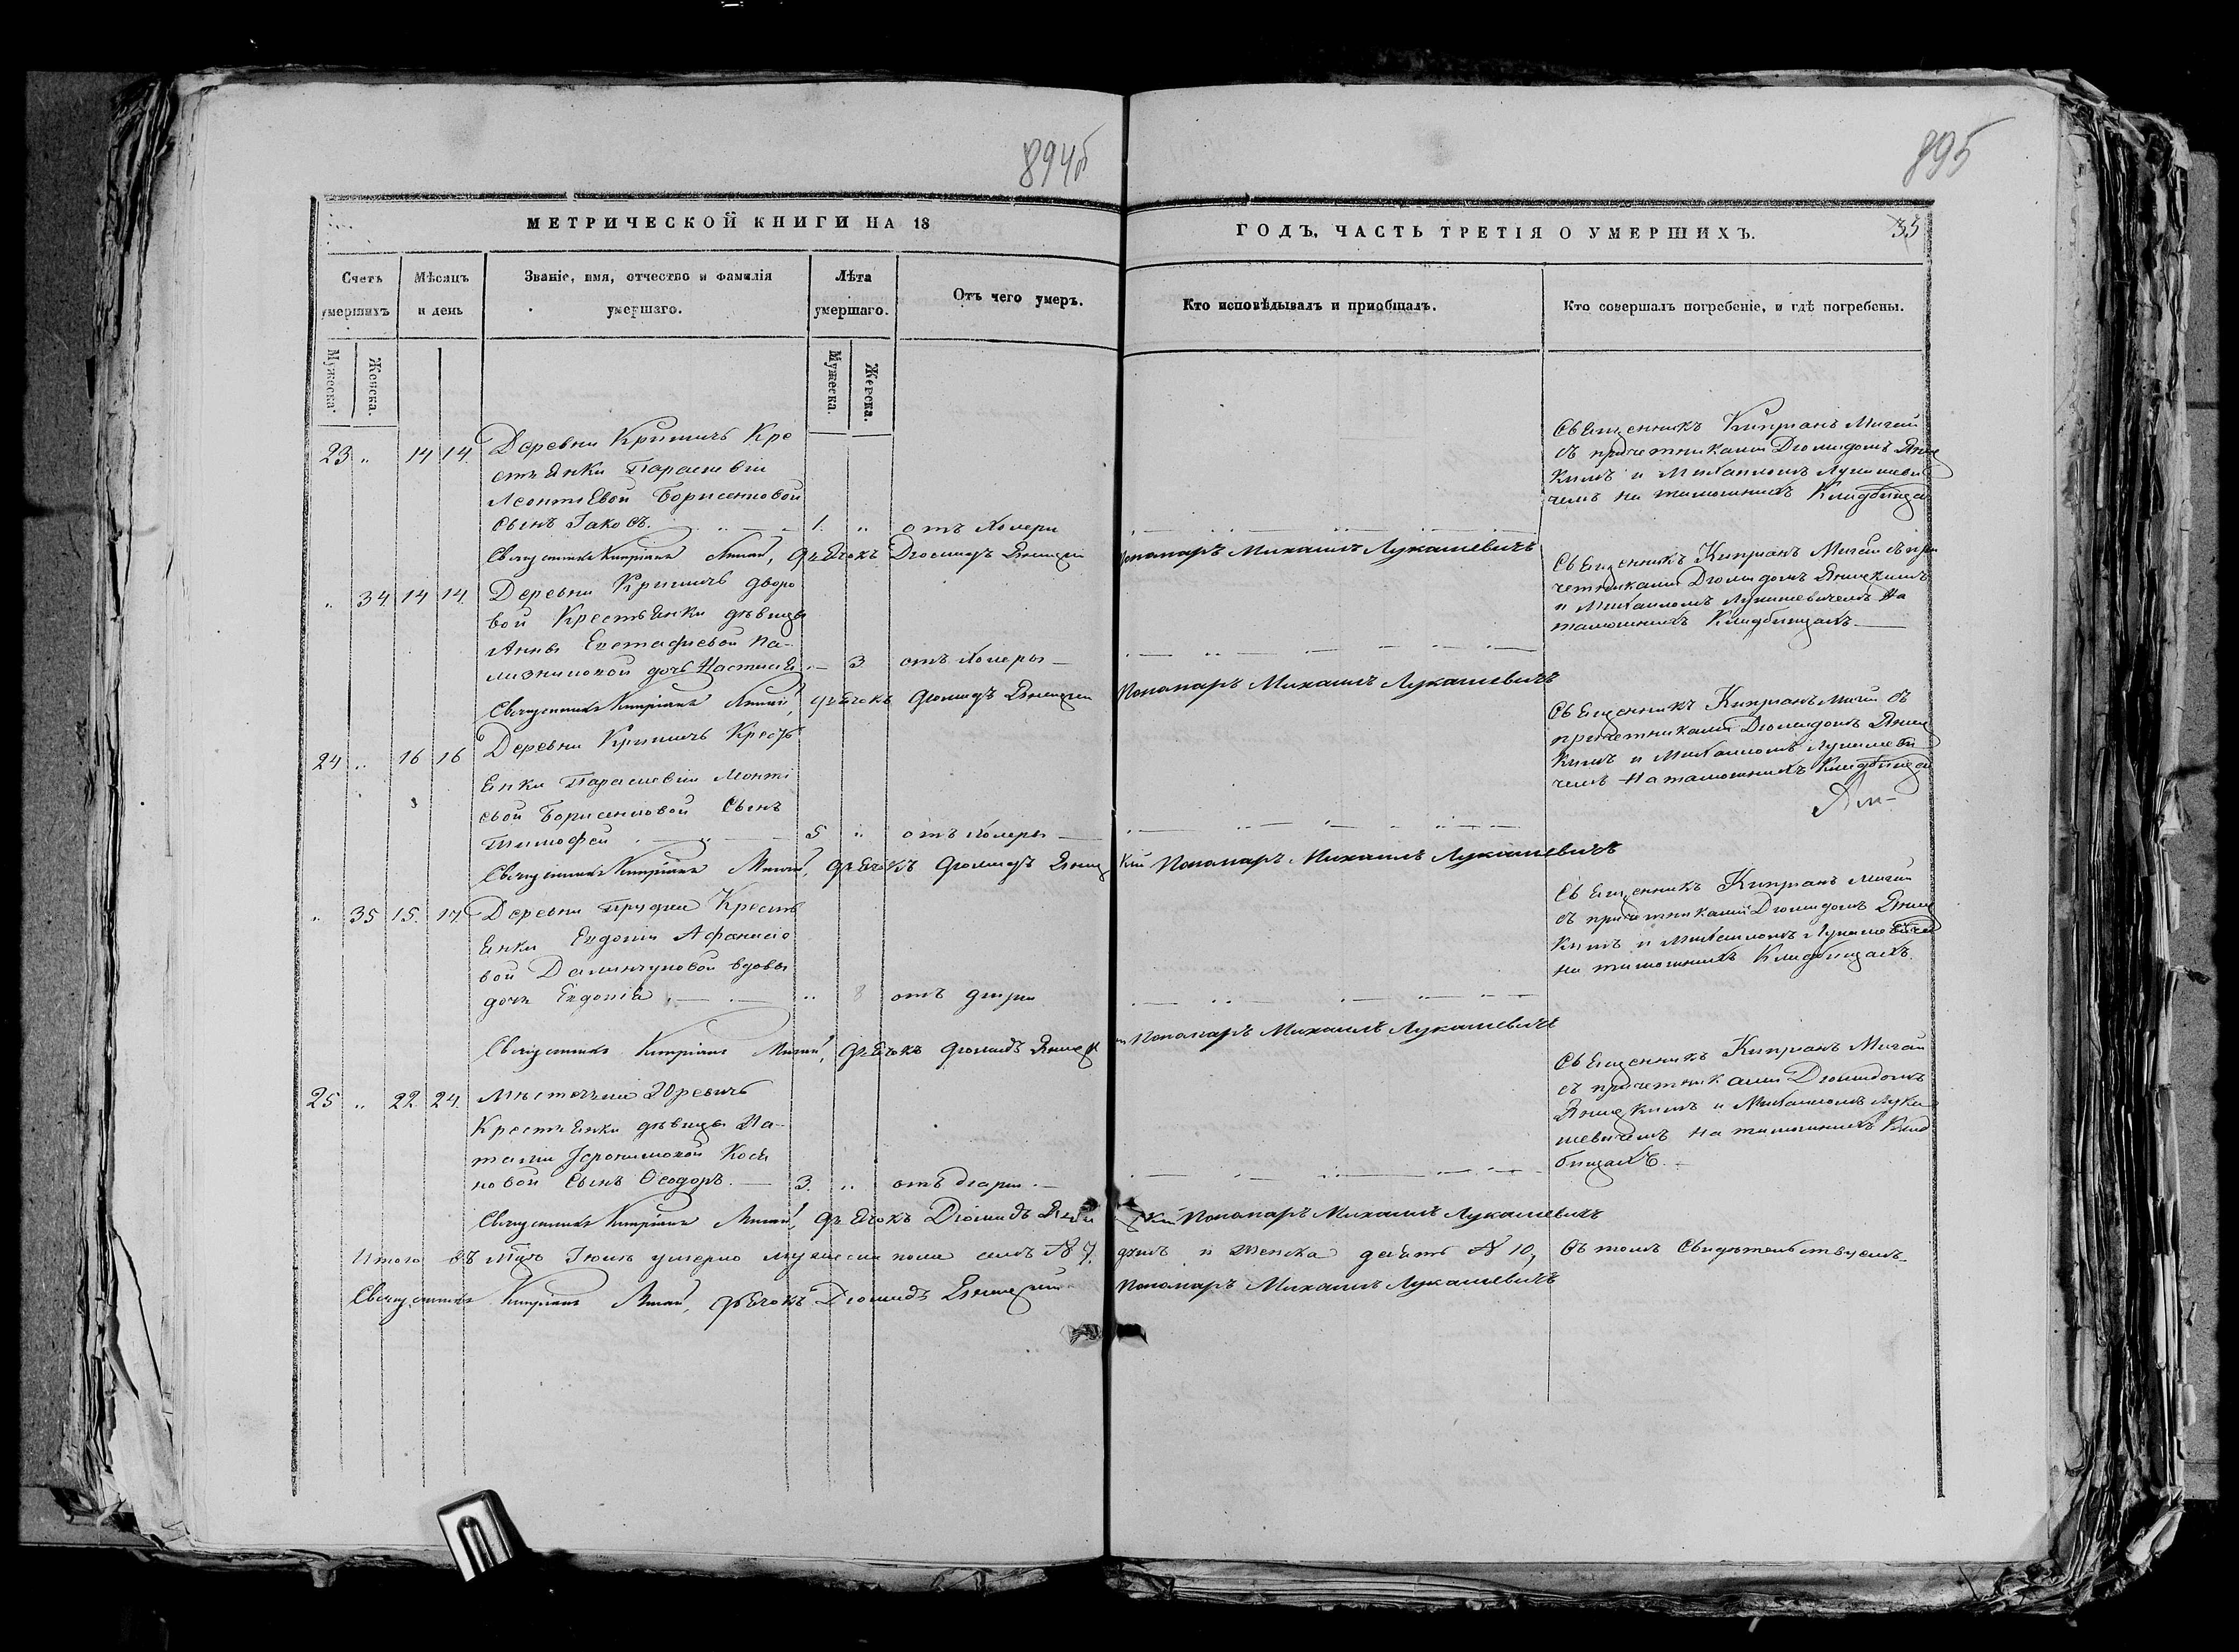 894б
895
МЕТРИЧЕСКОЙ КНИГИ НА 18
ГОДЪ, ЧАСТЬ ТРЕТІЯ О УМЕРШИХЪ.
33
Счетъ умершихъ
Мѣсяцъ и день
Званіе, имя, отчество и фамилія умершаго.
Лѣта умершаго.
Отъ чего умеръ.
Кто исповѣдывалъ и пріобщалъ.
Кто совершалъ погребеніе, и гдѣ погребены.
Мужеска.
Женска.
Мужеска.
Женска.
23 „ 14 14
Деревни Кримичъ Кре
стьянки Параскевіи
Леонтіевой Борисенковой
Сынъ Іаковъ. 1. „ отъ Холери
Священникъ Кипріянъ Мигай, дьячокъ Діомидъ Яницкій Пономаръ Михаилъ Лукашевичъ
Священникъ Кипріанъ Мигай
съ причетниками Діомидомъ Яниц
кимъ и Михаиломъ Лукашеви
чемъ на тамошнихъ Кладбищах
„ 34 14 14.
Деревни Кримичъ дворо
вой Крестьянки дѣвицы
Анны Евстафіевой
дочь Настасія 3 отъ Холеры
Священникъ Кипріянъ Мигай, дьячокъ Діомидъ Яницкій Пономаръ Михаилъ Лукашевичъ
Священникъ Кипріанъ Мигай съ при
четниками Діомидомъ Яницкимъ
и Михаиломъ Лукашевичемъ на
тамошнихъ Кладбищахъ
24 „ 16 16
Деревни Кримичъ Кресть
янки Параскевіи Леонті
евой Борисенковой Сынъ
Тимофей 5 „ отъ Холеры
Священникъ Кипріянъ Мигай, дьячокъ Діомидъ Яницкій Пономаръ Михаилъ Лукашевичъ
Священникъ Кипріанъ Мигай съ
причетниками Діомидомъ Яниц
кимъ и Михаиломъ Лукашеви
чемъ на тамошнихъ Кладбищах
„ 35 15. 17.
Деревни Крестья
янки Евдокіи Афанасіо
вой вдовы
дочь Евдокія „ 8 отъ
Священникъ Кипріянъ Мигай, дьячокъ Діомидъ Яницкій Пономаръ Михаилъ Лукашевичъ
Священникъ Кипріанъ Мигай
съ причетниками Діомидомъ Яниц
кимъ и Михаиломъ Лукашевичем
на тамошнихъ Кладбищахъ.
25 „ 22. 24.
Мѣстечка Юревичъ
Крестьянки дѣвицы На
таліи
Сынъ Ѳеодоръ. 3. „ отъ
Священникъ Кипріянъ Мигай, дьячокъ Діомидъ Яницкій Пономаръ Михаилъ Лукашевичъ
Священникъ Кипріанъ Мигай
съ причетниками Діомидомъ
Яницкимъ и Михаиломъ Лука
шевичемъ на тамошнихъ Клад
бищахъ.
Итого въ умерло мужеска пола семъ № 7. и женска десять № 10, Въ томъ Свидѣтельствуемъ
Священникъ Кипріянъ Мигай, дьячокъ Діомидъ Яницкій Пономаръ Михаилъ Лукашевичъ